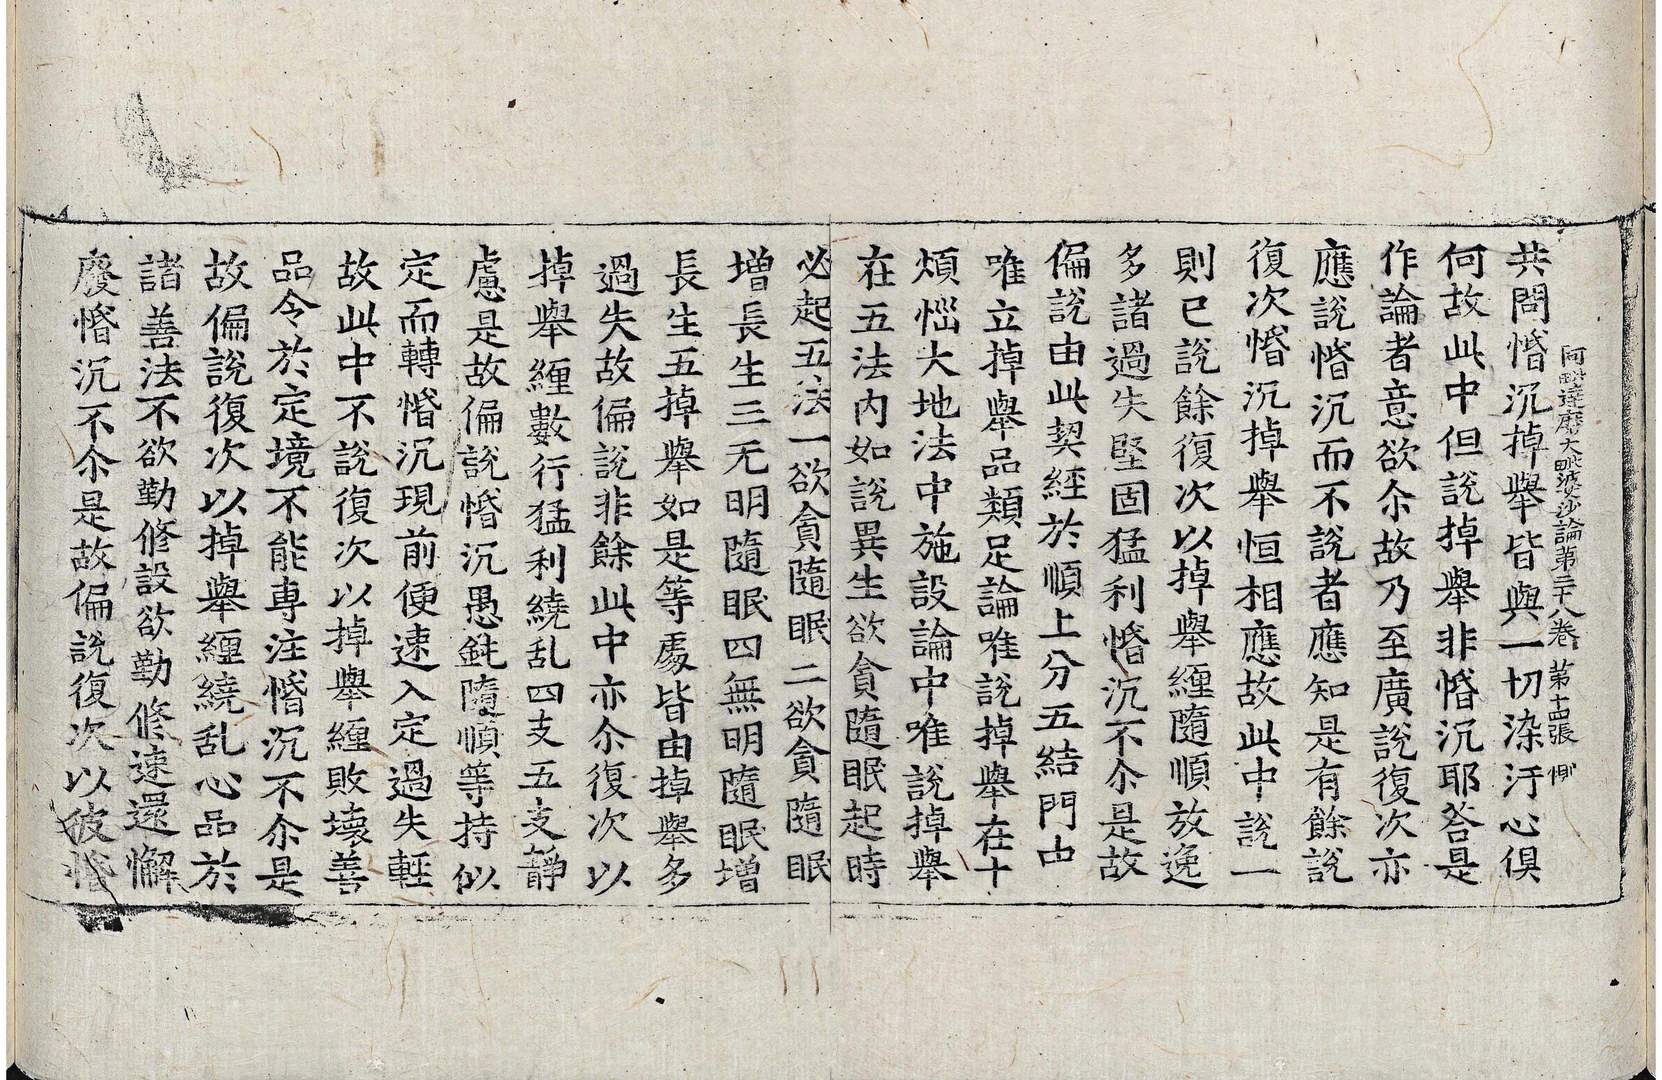 阿毗達磨大毗婆沙論第三十八卷 第十四張 惻
共問惛沉掉舉皆與一切染汙心俱
何故此中但說掉舉非惛沉耶荅是
作論者意欲尒故乃至廣說復次亦
應說惛沉而不說者應知是有餘說
復次惛沉掉舉恒相應故此中說一
則已說餘復次以掉舉纏隨順放逸
多諸過失堅固猛利惛沉不尒是故
偏說由此契經於順上分五結門中
唯立掉舉品類足論唯說掉舉在十
煩惱大地法中施設論中唯說掉舉
在五法內如說異生欲貪隨眠起時
必起五法一欲貪隨眠二欲貪隨眠
增長生三无明隨眠四無明隨眠增
長生五掉舉如是等處皆由掉舉多
過失故偏說非餘此中亦尒復次以
掉舉纏數行猛利繞乱四支五支靜
慮是故偏說惛沉愚鈍隨順等持似
定而轉惛沉現前便速入定過失輕
故此中不說復次以掉舉纏敗壞善
品令於定境不能專注惛沉不尒是
故偏說復次以掉舉纏繞乱心品於
諸善法不欲勤修設欲勤修速還懈
廢惛沉不尒是故偏說復次以彼惛